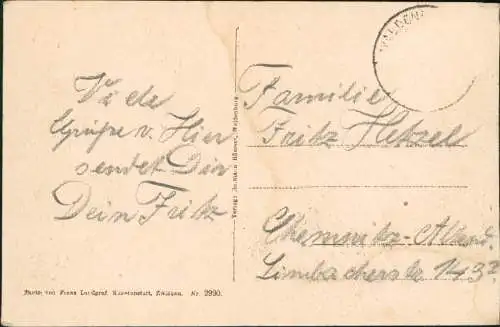 Viele
Grüße v. Hier
sendet Dir
Dein Fritz
Familie
Fritz Hetzel
Chemnitz-Altend.
Limbacherstr. 143
Photo von Franz Landgraf, Kunstanstalt, Zwickau. Nr. 2990.
Verlag:
Waldenburg
WALDENB